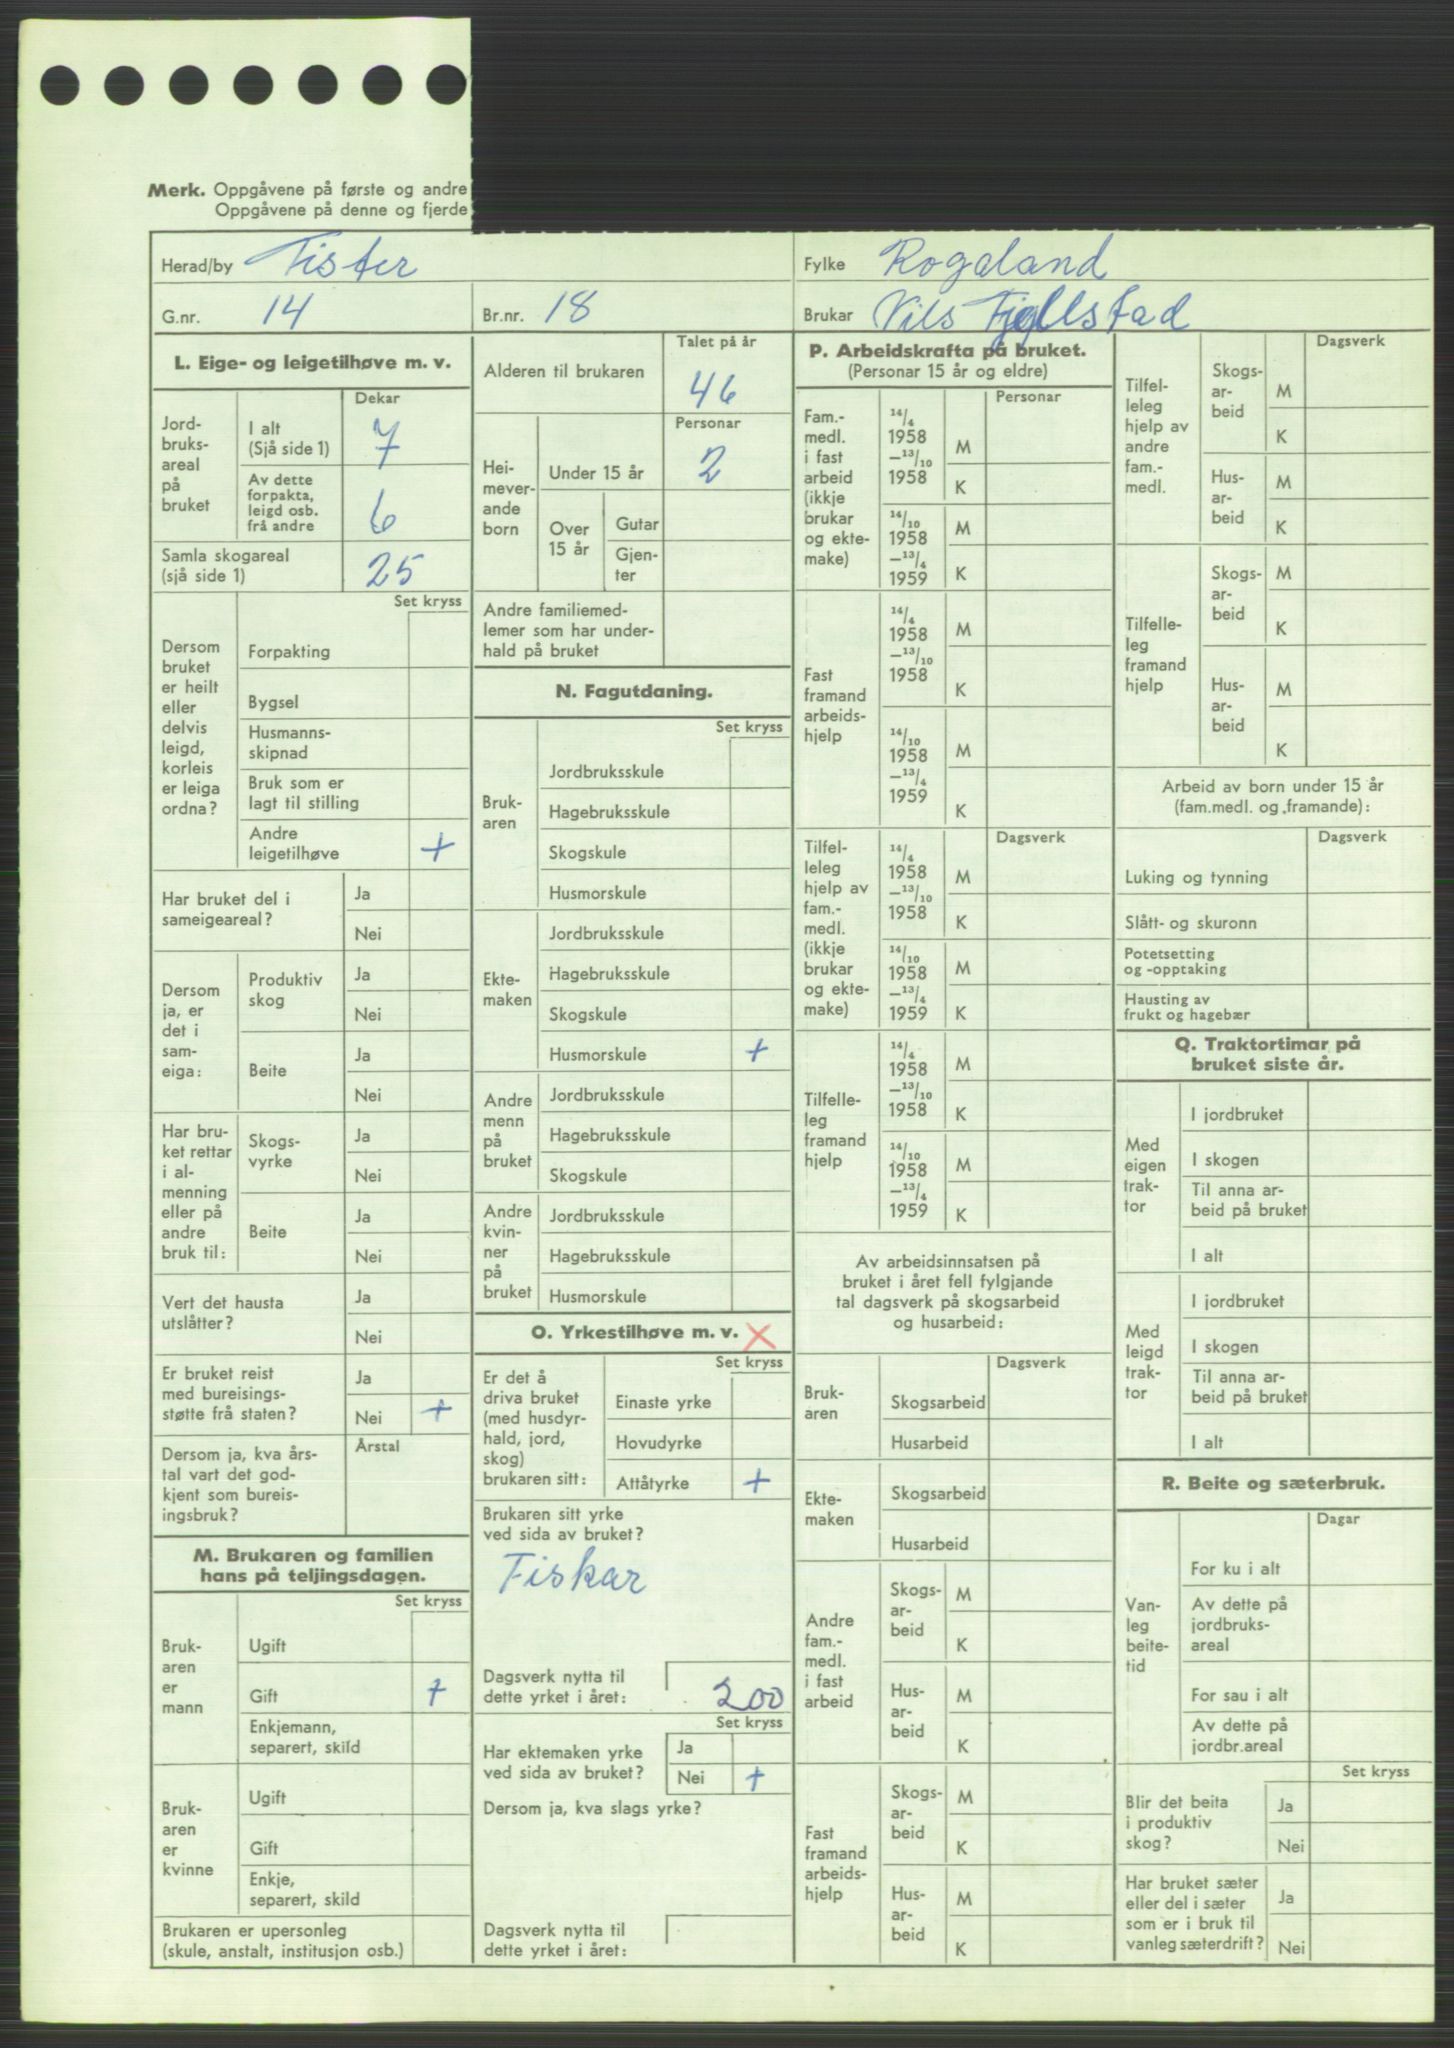 Merk. Oppgåvene på første og andre
Oppgåvene på denne og fjerde
Herad/by Tister
Fylke Rogaland
G.nr. 14
Br.nr. 18
Brukar Nils Fjellstad
L. Eige- og leigetilhøve m. v.
Dekar
Jord-
bruks-
areal
på
bruket
I alt
(Sjå side 1) 7
Av dette
forpakta,
leigd osb.
frå andre 6
Samla skogareal
(sjå side 1) 25
Set kryss
Dersom
bruket
er heilt
eller
delvis
leigd,
korleis
er leiga
ordna?
Forpakting
Bygsel
Husmanns-
skipnad
Bruk som er
lagt til stilling
Andre
leigetilhøve +
Har bruket del i
sameigeareal?
Ja
Nei
Dersom
ja, er
det i
sam-
eiga:
Produktiv
skog
Ja
Nei
Beite
Ja
Nei
Har bru-
ket rettar
i al-
menning
eller på
andre
bruk til:
Skogs-
vyrke
Ja
Nei
Beite
Ja
Nei
Vert det hausta
utslåtter?
Ja
Nei
Er bruket reist
med bureisings-
støtte frå staten?
Ja
Nei +
Dersom ja, kva års-
tal vart det god-
kjent som bureis-
ingsbruk?
Årstal
M. Brukaren og familien
hans på teljingsdagen.
Set kryss
Bruk-
aren
er
mann
Ugift
Gift +
Enkjemann,
separert, skild
Bruk-
aren
er
kvinne
Ugift
Gift
Enkje,
separert, skild
Brukaren er upersonleg
(skule, anstalt, institusjon osb.)
Talet på år
Alderen til brukaren 46
Personar
Hei-
mever-
ande
born
Under 15 år 2
Over
15 år
Gutar
Gjen-
ter
Andre familiemed-
lemer som har under-
hald på bruket
N. Fagutdaning.
Set kryss
Bruk-
aren
Jordbruksskule
Hagebruksskule
Skogskule
Husmorskule
Ekte-
maken
Jordbruksskule
Hagebruksskule
Skogskule
Husmorskule +
Andre
menn
på
bruket
Jordbruksskule
Hagebruksskule
Skogskule
Andre
kvin-
ner
på
bruket
Jordbruksskule
Hagebruksskule
Husmorskule
O. Yrkestilhøve m. v. X
Set kryss
Er det å
driva bruket
(med husdyr-
hald, jord,
skog)
brukaren sitt:
Einaste yrke
Hovudyrke
Attåtyrke +
Brukaren sitt yrke
ved sida av bruket?
Fiskar
Dagsverk nytta til
dette yrket i året: 200
Set kryss
Har ektemaken yrke
ved sida av bruket?
Ja
Nei +
Dersom ja, kva slags yrke?
Dagsverk nytta til
dette yrket i året:
P. Arbeidskrafta på bruket.
(Personar 15 år og eldre)
Personar
Fam.-
medl.
i fast
arbeid
(ikkje
brukar
og ekte-
make)
14/4
1958
–13/10
1958
M
K
14/10
1958
–13/4
1959
M
K
Fast
framand
arbeids-
hjelp
14/4
1958
–13/10
1958
M
K
14/10
1958
–13/4
1959
M
K
Dagsverk
Tilfel-
leleg
hjelp av
fam.-
medl.
(ikkje
brukar
og ekte-
make)
14/4
1958
–13/10
1958
M
K
14/10
1958
–13/4
1959
M
K
Tilfelle-
leg
framand
hjelp
14/4
1958
–13/10
1958
M
K
14/10
1958
–13/4
1959
M
K
Av arbeidsinnsatsen på
bruket i året fell fylgjande
tal dagsverk på skogsarbeid
og husarbeid:
Dagsverk
Bruk-
aren
Skogsarbeid
Husarbeid
Ekte-
maken
Skogsarbeid
Husarbeid
Andre
fam.-
medl.
i fast
arbeid
Skogs-
ar-
beid
M
K
Hus-
ar-
beid
M
K
Fast
framand
arbeids-
hjelp
Skogs-
ar-
beid
M
K
Hus-
ar-
beid
M
K
Dagsverk
Tilfel-
leleg
hjelp av
andre
fam.-
medl.
Skogs-
ar-
beid
M
K
Hus-
ar-
beid
M
K
Tilfelle-
leg
framand
hjelp
Skogs-
ar-
beid
M
K
Hus-
ar-
beid
M
K
Arbeid av born under 15 år
(fam.medl. og framande):
Dagsverk
Luking og tynning
Slått- og skuronn
Potetsetting
og -opptaking
Hausting av
frukt og hagebær
Q. Traktortimar på
bruket siste år.
Med
eigen
trak-
tor
I jordbruket
I skogen
Til anna ar-
beid på bruket
I alt
Med
leigd
trak-
tor
I jordbruket
I skogen
Til anna ar-
beid på bruket
I alt
R. Beite og sæterbruk.
Dagar
Van-
leg
beite-
tid
For ku i alt
Av dette på
jordbruks-
areal
For sau i alt
Av dette på
jordbr.areal
Set kryss
Blir det beita
i produktiv
skog?
Ja
Nei
Har bruket sæter
eller del i sæter
som er i bruk til
vanleg sæterdrift?
Ja
Nei